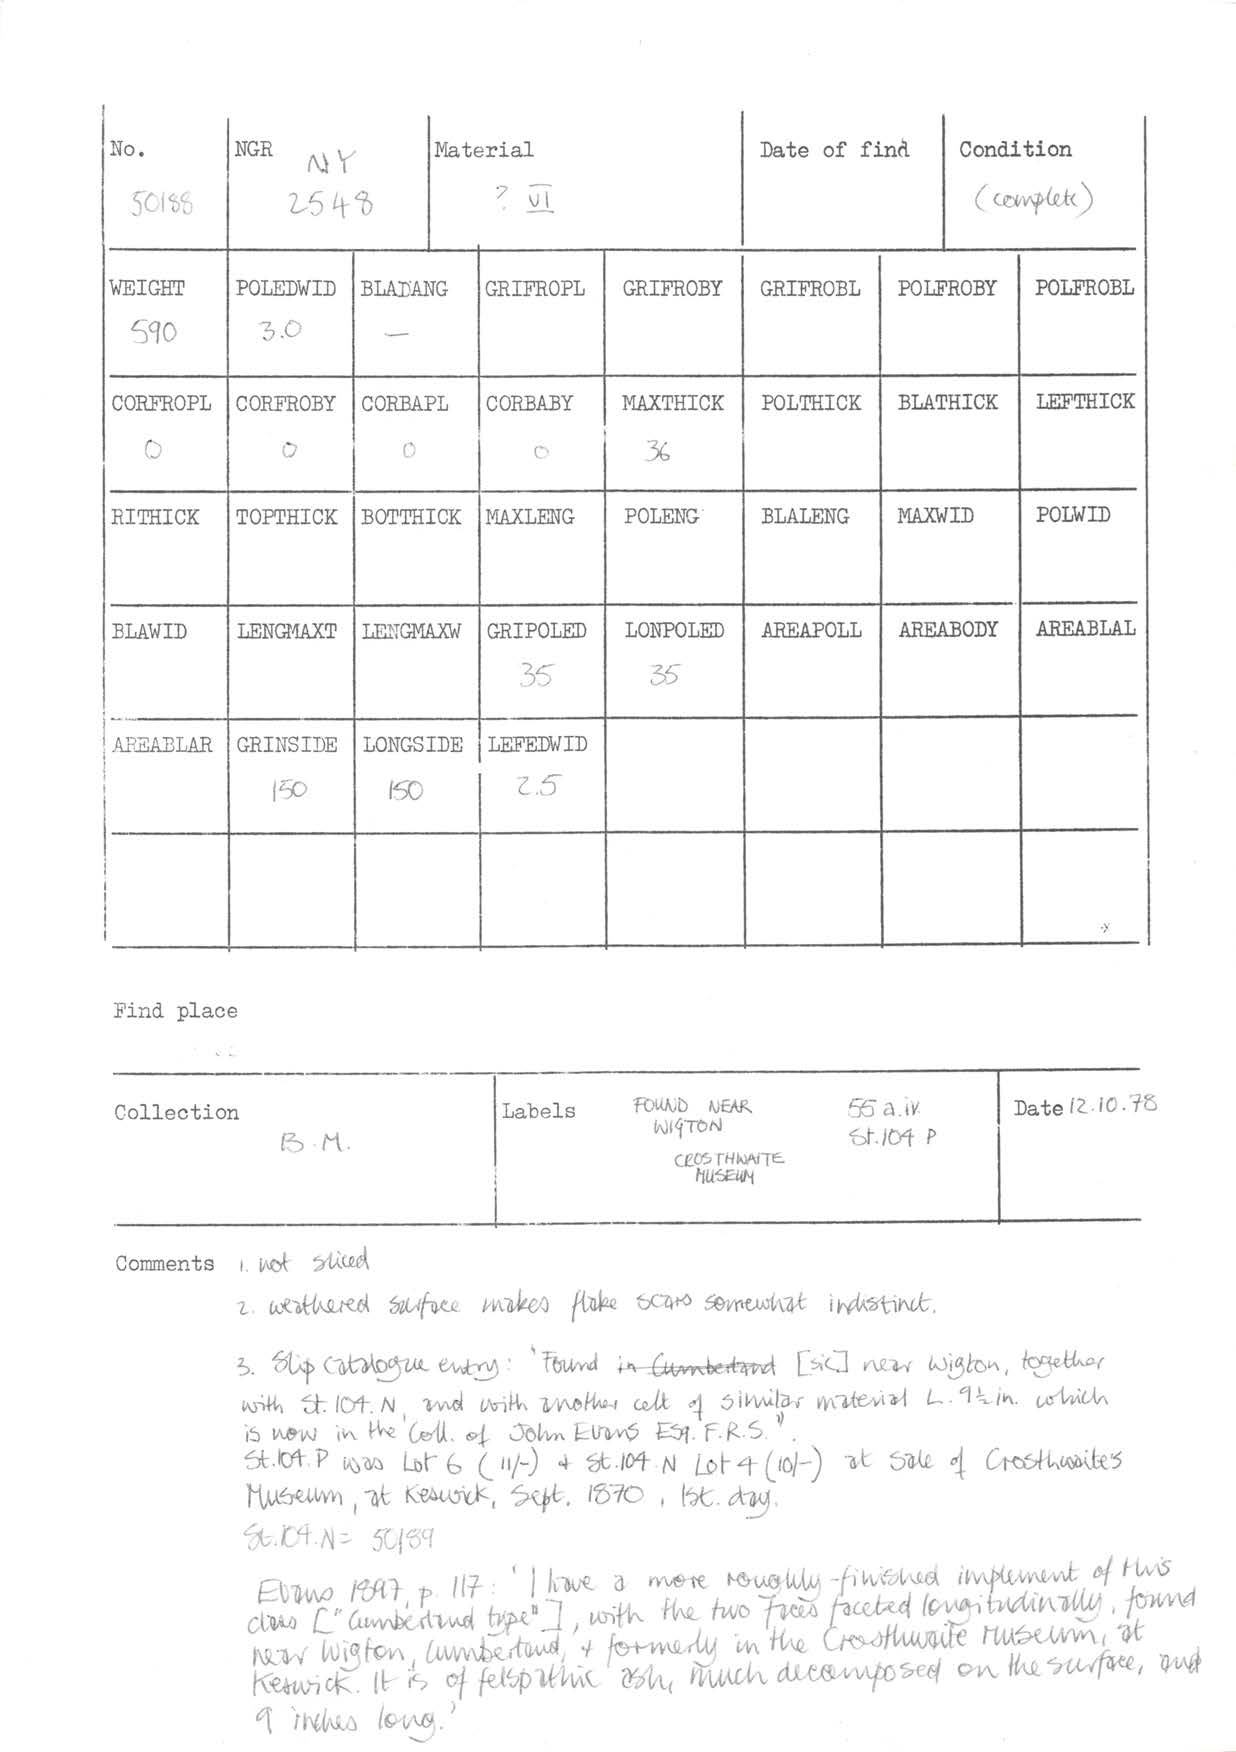 No. NGR NY Material Date of find Condition
50188 2548 ? VI (complete)
WEIGHT POLEDWID BLADANG GRIFROPL GRIFROBY GRIFROBL POLFROBY POLFROBL
590 3.0 —
CORFROPL CORFROBY CORBAPL CORBABY MAXTHICK POLTHICK BLATHICK LEFTHICK
0 0 0 0 36
RITHICK TOPTHICK BOTTHICK MAXLENG POLENG BLALENG MAXWID POLWID
BLAWID LENGMAXT LENGMAXW GRIPOLED LONPOLED AREAPOLL AREABODY AREABLAL
35 35
AREABLAR GRINSIDE LONGSIDE LEFEDWID
150 150 2.5
Find place
Collection
B.M.
Labels FOUND NEAR
WIGTON
CROSTHWAITE
MUSEUM
55 a.iv.
St.104 P
Date 12.10.78
Comments 1. not sliced
2. weathered surface makes flake scars somewhat indistinct.
3. Slip catalogue entry: 'Found in Cumberland [sic] near Wigton, together
with St.104.N, and with another celt of similar material L. 9½ in. which
is now in the Coll. of John Evans Esq. F.R.S.".
St.104.P was Lot 6 (11/-) + St.104.N Lot 4 (10/-) at sale of Crosthwaite's
Museum, at Keswick, Sept. 1870, 1st. day.
St.104.N = 50189
Evans 1897, p. 117: 'I have a more roughly-finished implement of this
class ["Cumberland type"], with the two faces faceted longitudinally, found
near Wigton, Cumberland, + formerly in the Crosthwaite Museum, at
Keswick. It is of felspathic ash, much decomposed on the surface, and
9 inches long.'